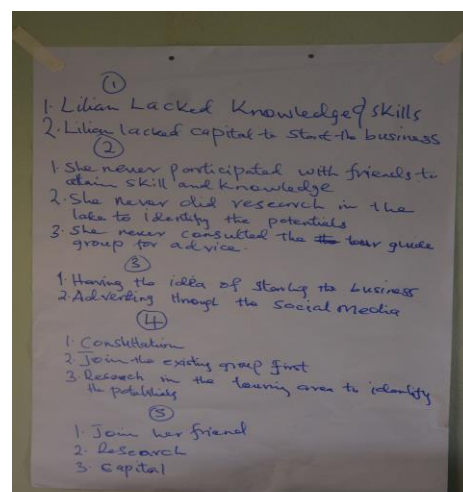 ①
1. Lilian Lacked Knowledge & skills
2. Lilian lacked capital to start the business
②
1. She never participated with friends to
attain skill and knowledge
2. She never did research in the
lake to identify the potentials
3. She never consulted the tour guide
group for advice.
③
1. Having the idea of starting the business
2. Adverting through the social media
④
1. Consultation
2. Join the existing group first
3. Research in the touring area to identify
the potentials
⑤
1. Join her friend
2. Research
3. Capital